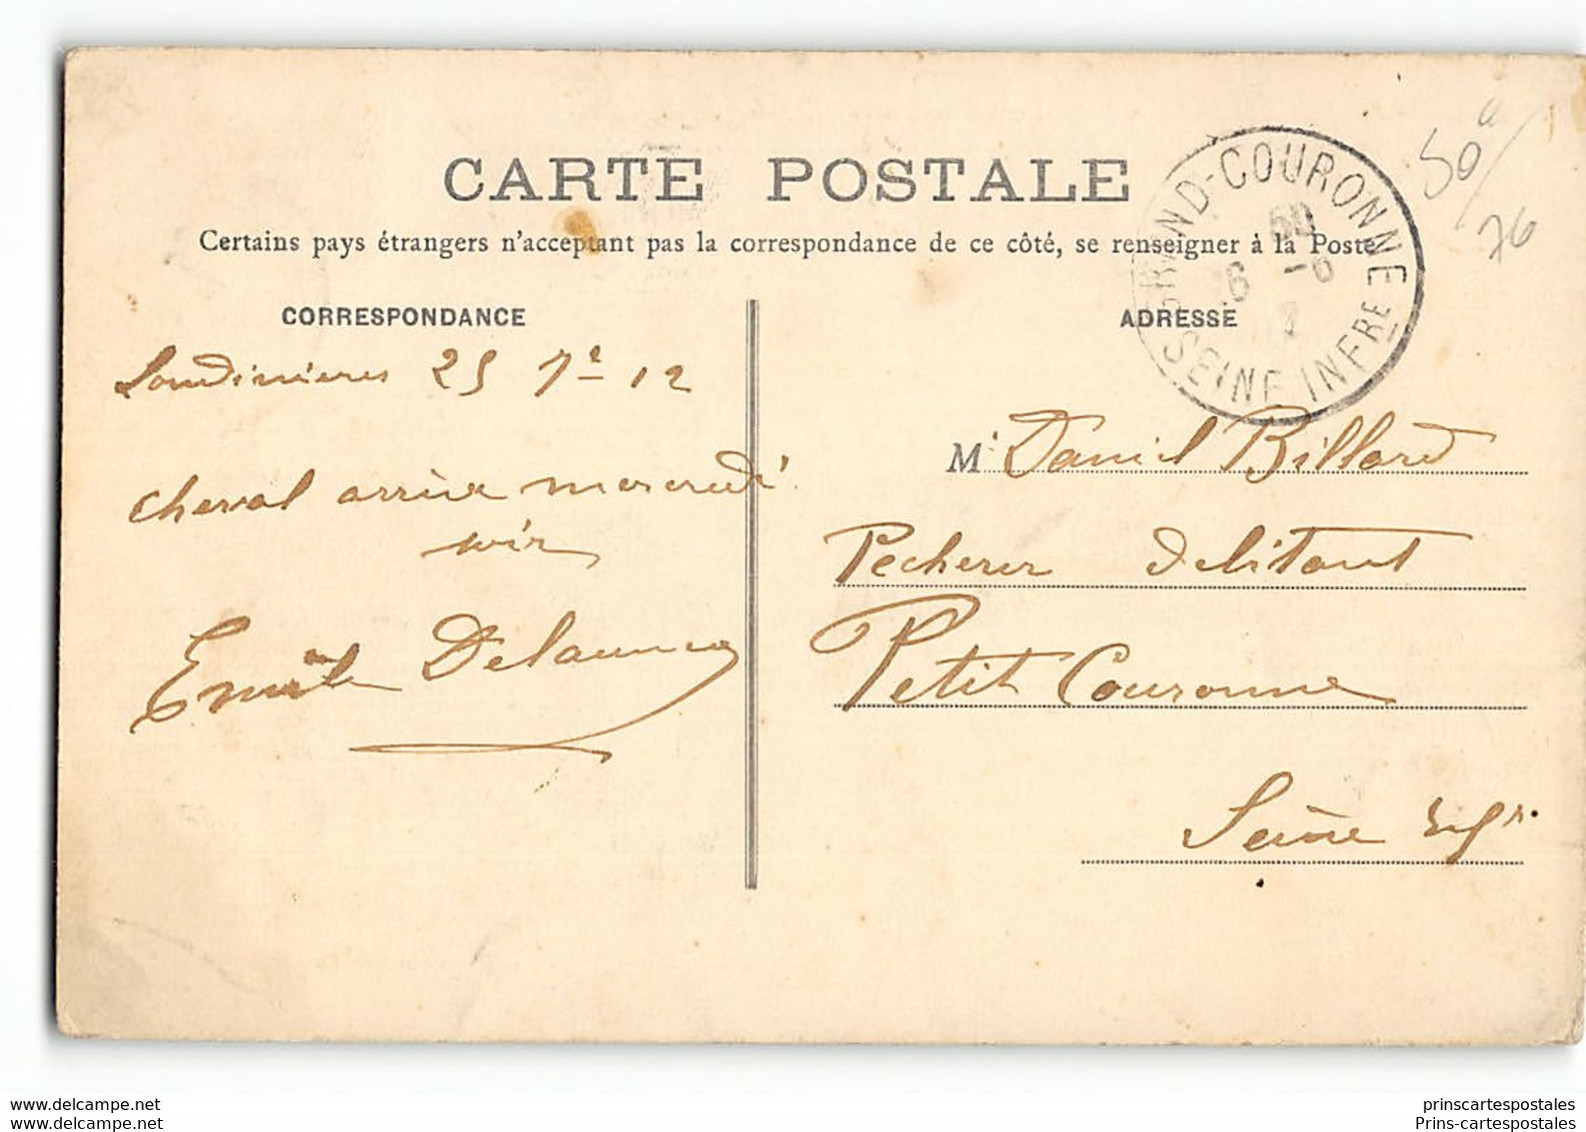 CARTE POSTALE
Certains pays étrangers n'acceptant pas la correspondance de ce côté, se renseigner à la Poste
GRAND-COURONNE
SEINE INFRE
50
76
CORRESPONDANCE
Londinieres 25 7e 12
cheval arrive mercredi
soir
Emile Delaunay
ADRESSE
M. Daniel Billard
Pecheur debitant
Petit Couronne
Seine Infr.
www.delcampe.net
www.delcampe.net
prinscartespostales
Prins-cartespostales